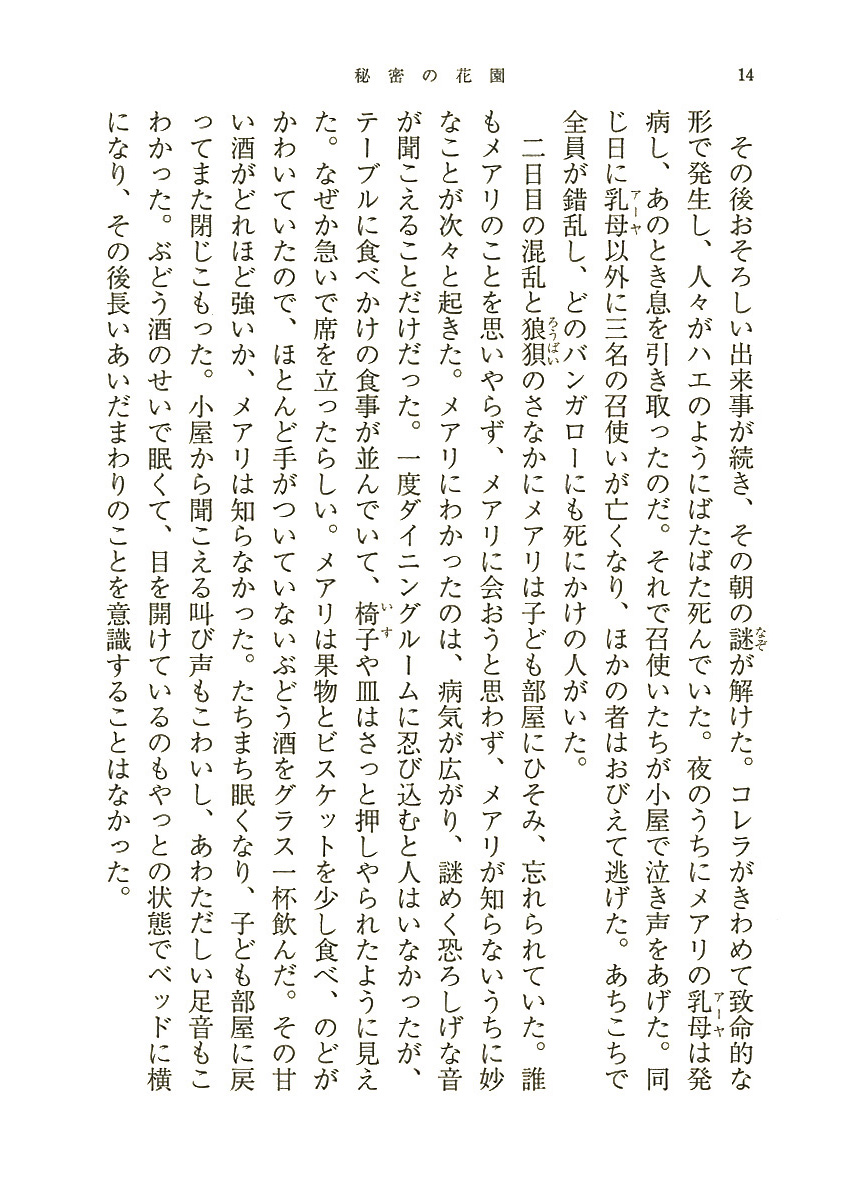 秘密の花園
14
その後おそろしい出来事が続き、その朝の謎が解けた。コレラがきわめて致命的な
形で発生し、人々がハエのようにばたばた死んでいた。夜のうちにメアリの乳母は発
病し、あのとき息を引き取ったのだ。それで召使いたちが小屋で泣き声をあげた。同
じ日に乳母以外に三名の召使いが亡くなり、ほかの者はおびえて逃げた。あちこちで
全員が錯乱し、どのバンガローにも死にかけの人がいた。
二日目の混乱と狼狽のさなかにメアリは子ども部屋にひそみ、忘れられていた。誰
もメアリのことを思いやらず、メアリに会おうと思わず、メアリが知らないうちに妙
なことが次々と起きた。メアリにわかったのは、病気が広がり、謎めく恐ろしげな音
が聞こえることだけだった。一度ダイニングルームに忍び込むと人はいなかったが、
テーブルに食べかけの食事が並んでいて、椅子や皿はさっと押しやられたように見え
た。なぜか急いで席を立ったらしい。メアリは果物とビスケットを少し食べ、のどが
かわいていたので、ほとんど手がついていないぶどう酒をグラス一杯飲んだ。その甘
い酒がどれほど強いか、メアリは知らなかった。たちまち眠くなり、子ども部屋に戻
ってまた閉じこもった。小屋から聞こえる叫び声もこわいし、あわただしい足音もこ
わかった。ぶどう酒のせいで眠くて、目を開けているのもやっとの状態でベッドに横
になり、その後長いあいだまわりのことを意識することはなかった。